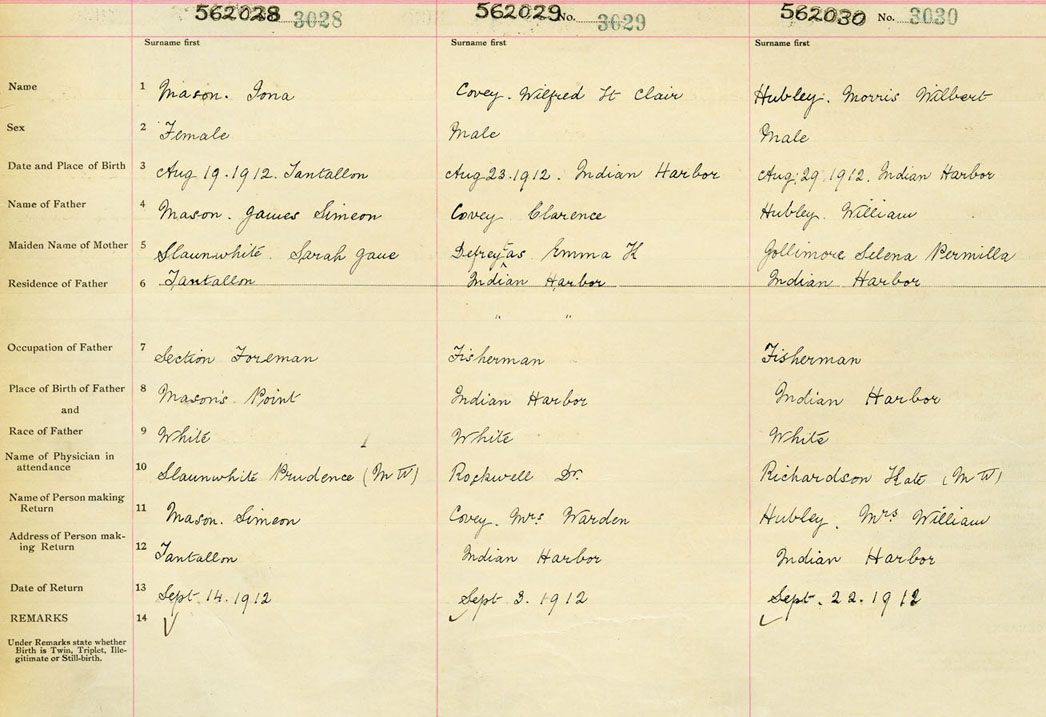 562028 3028 562029 No. 3029 562030 No. 3030
Surname first Surname first Surname first
Name 1 Mason. Iona Covey. Wilfred St Clair Hubley. Morris Wilbert
Sex 2 Female Male Male
Date and Place of Birth 3 Aug 19.1912. Tantallon Aug 23.1912. Indian Harbor Aug. 29.1912. Indian Harbor
Name of Father 4 Mason. James Simeon Covey Clarence Hubley. William
Maiden Name of Mother 5 Slaunwhite. Sarah Jane Emma H Gollimore Selena Permilla
Residence of Father 6 Tantallon Indian Harbor Indian Harbor
" "
Occupation of Father 7 Section Foreman Fisherman Fisherman
Place of Birth of Father 8 Mason's Point Indian Harbor Indian Harbor
and
Race of Father 9 White White White
Name of Physician in
attendance 10 Slaunwhite Prudence (M W) Rockwell Dr. Richardson Kate (M W)
Name of Person making
Return 11 Mason. Simeon Covey. Mrs Warden Hubley. Mrs William
Address of Person mak-
ing Return 12 Tantallon Indian Harbor Indian Harbor
Date of Return 13 Sept. 14.1912 Sept 3.1912 Sept. 22.1912
REMARKS 14
Under Remarks state whether
Birth is Twin, Triplet, Ille-
gitimate or Still-birth.